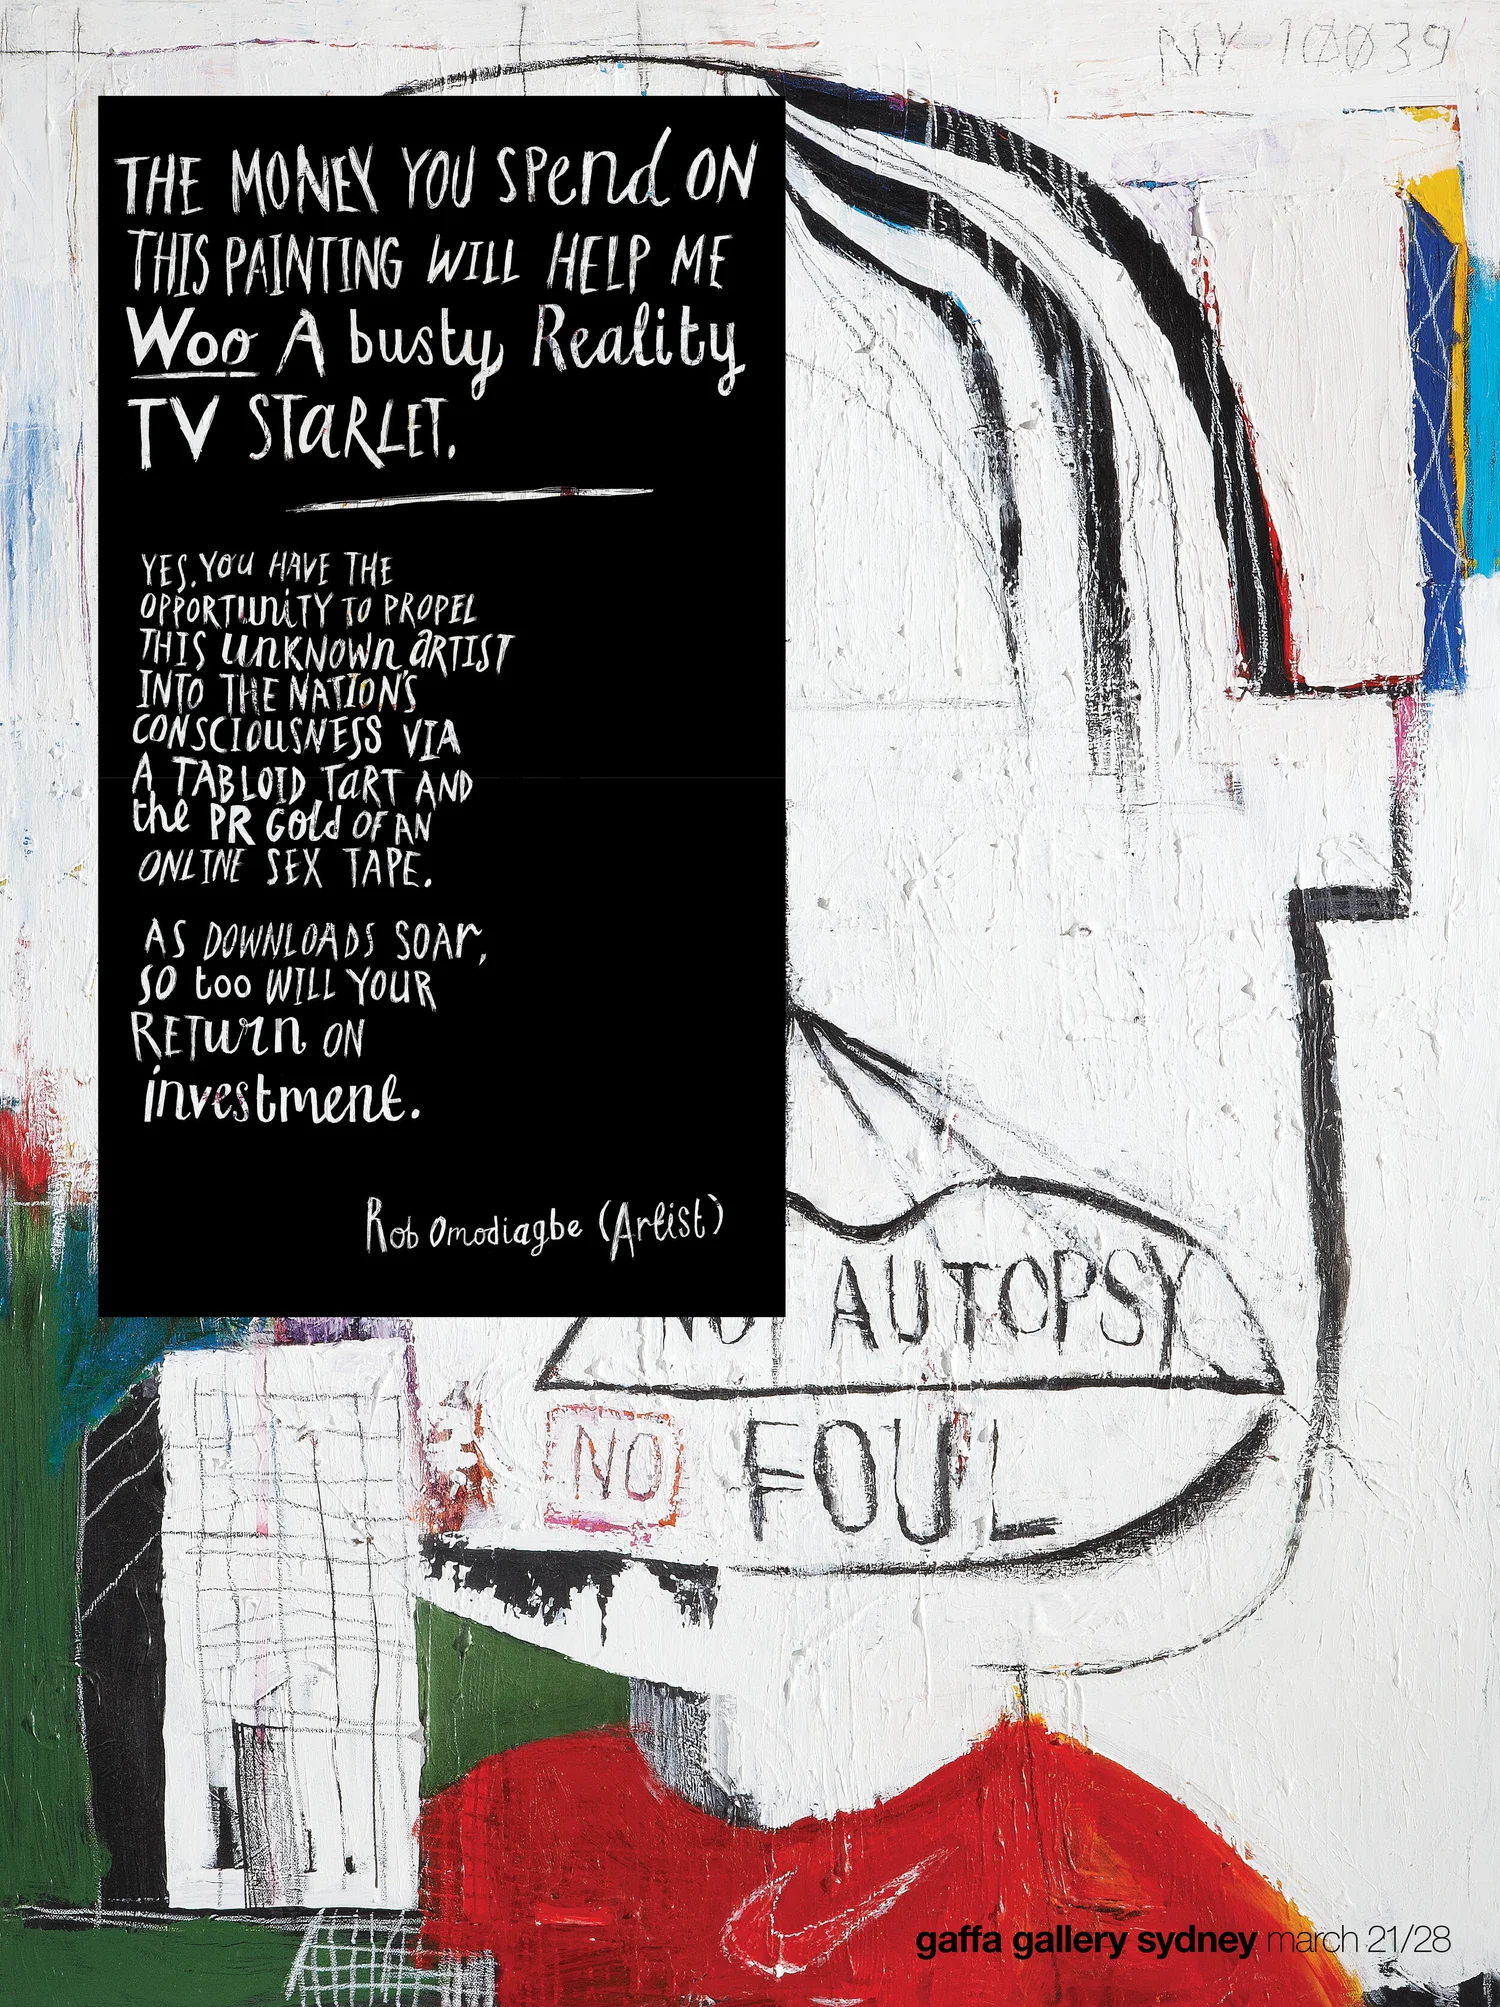 NY 10039
THE MONEY YOU SPEND ON
THIS PAINTING WILL HELP ME
Woo A busty Reality
TV STARLET.
YES, YOU HAVE THE
OPPORTUNITY TO PROPEL
THIS UNKNOWN ARTIST
INTO THE NATION'S
CONSCIOUSNESS VIA
A TABLOID TART AND
the PR Gold OF AN
ONLINE SEX TAPE.
AS DOWNLOADS SOAR,
SO too WILL YOUR
RETURN ON
investment.
Rob Omodiagbe (Artist)
NO AUTOPSY
NO FOUL
gaffa gallery sydney march 21/28